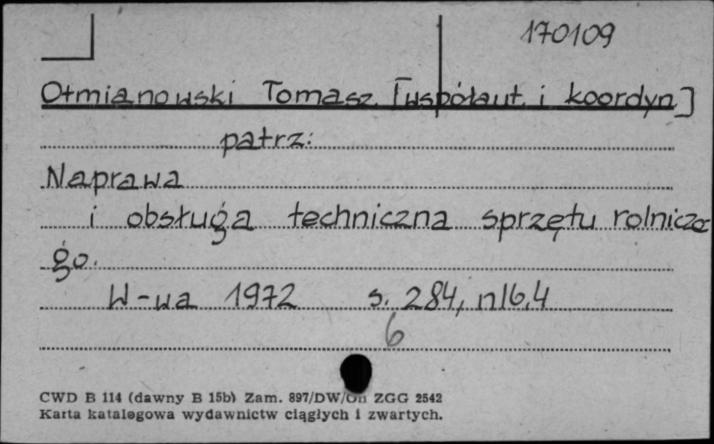 170109
Otmianowski Tomasz. [współaut. i koordyn]
patrz:
Naprawa
i obsługa techniczna sprzętu rolnicze-
go.
W-wa 1972 s. 284, nlb.4
6
CWD B 114 (dawny B 15b) Zam. 897/DW/ ZGG 2542
Karta katalogowa wydawnictw ciągłych i zwartych.